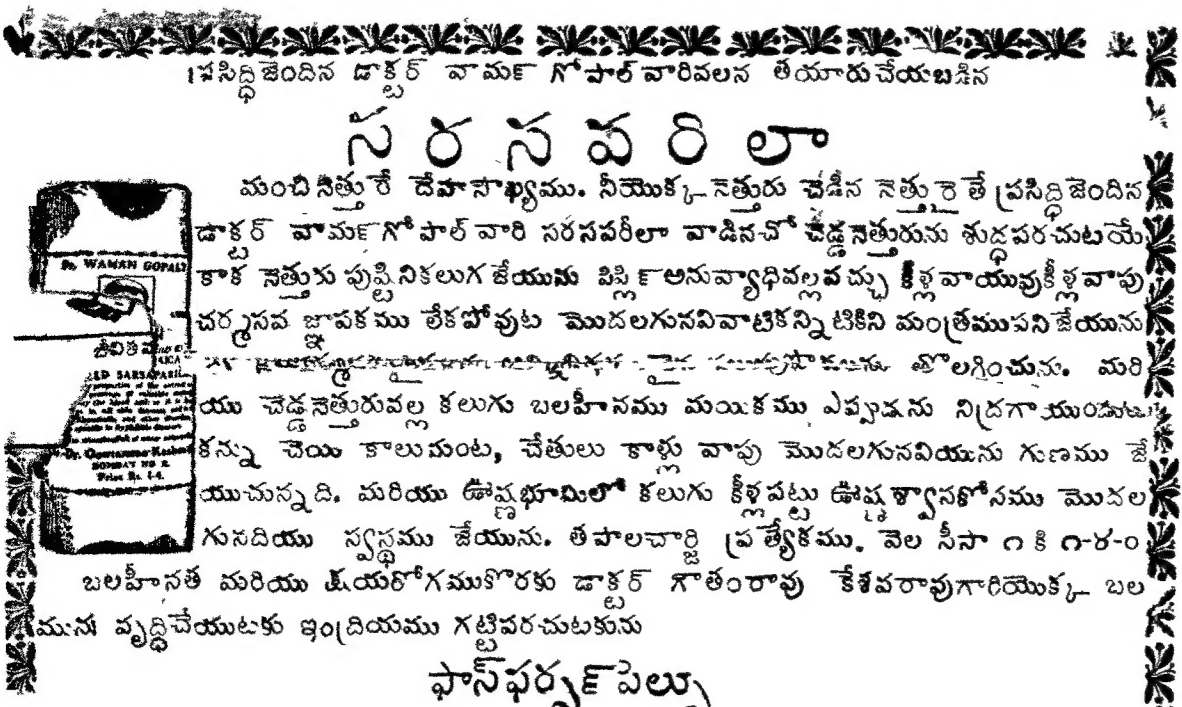 ప్రసిద్ధిజెందిన డాక్టర్ వామ౯ గోపాల్ వారివలన తయారుచేయబడిన
సరసపరిలా
మంచినెత్తురే దేహసౌఖ్యము. నీయొక్క నెత్తురు చెడిన నెత్తురైతే ప్రసిద్ధిజెందిన
డాక్టర్ వామ౯గోపాల్ వారి సరసపరీలా వాడినచో చెడ్డనెత్తురును శుద్ధపరచుటయే
కాక నెత్తుకు పుష్టినికలుగజేయును పిప్లి౯ అనువ్యాధివల్లవచ్చు కీళ్లవాయువుకీళ్లవాపు
చర్మసవ జ్ఞాపకము లేకపోవుట మొదలగునవివాటికన్నిటికిని మంత్రముపనిజేయును
తొలగించును. మరి
యు చెడ్డనెత్తురువల్ల కలుగు బలహీనము మయికము ఎప్పుడును నిద్రగాయుండుట
కన్ను చెయి కాలుమంట, చేతులు కాళ్లు వాపు మొదలగునవియును గుణము జే
యుచున్నది. మరియు ఊష్ణభూమిలో కలుగు కీళ్లపట్టు ఊష్ణ మొదల
గునదియు స్వస్థము జేయును. తపాలచార్జి ప్రత్యేకము. వెల సీసా ౧ కి ౧-౪-౦
బలహీనత మరియు క్షయరోగముకొరకు డాక్టర్ గౌతంరావు కేశవరావుగారియొక్క బల
మును వృద్ధిచేయుటకు ఇంద్రియము గట్టిపరచుటకును
ఫాస్‌ఫర్స౯పెల్సు
Dr. WAMAN GOPAL
OLD SARSAPARIL
BOMBAY NO 2.
Price Rs. 1-4.